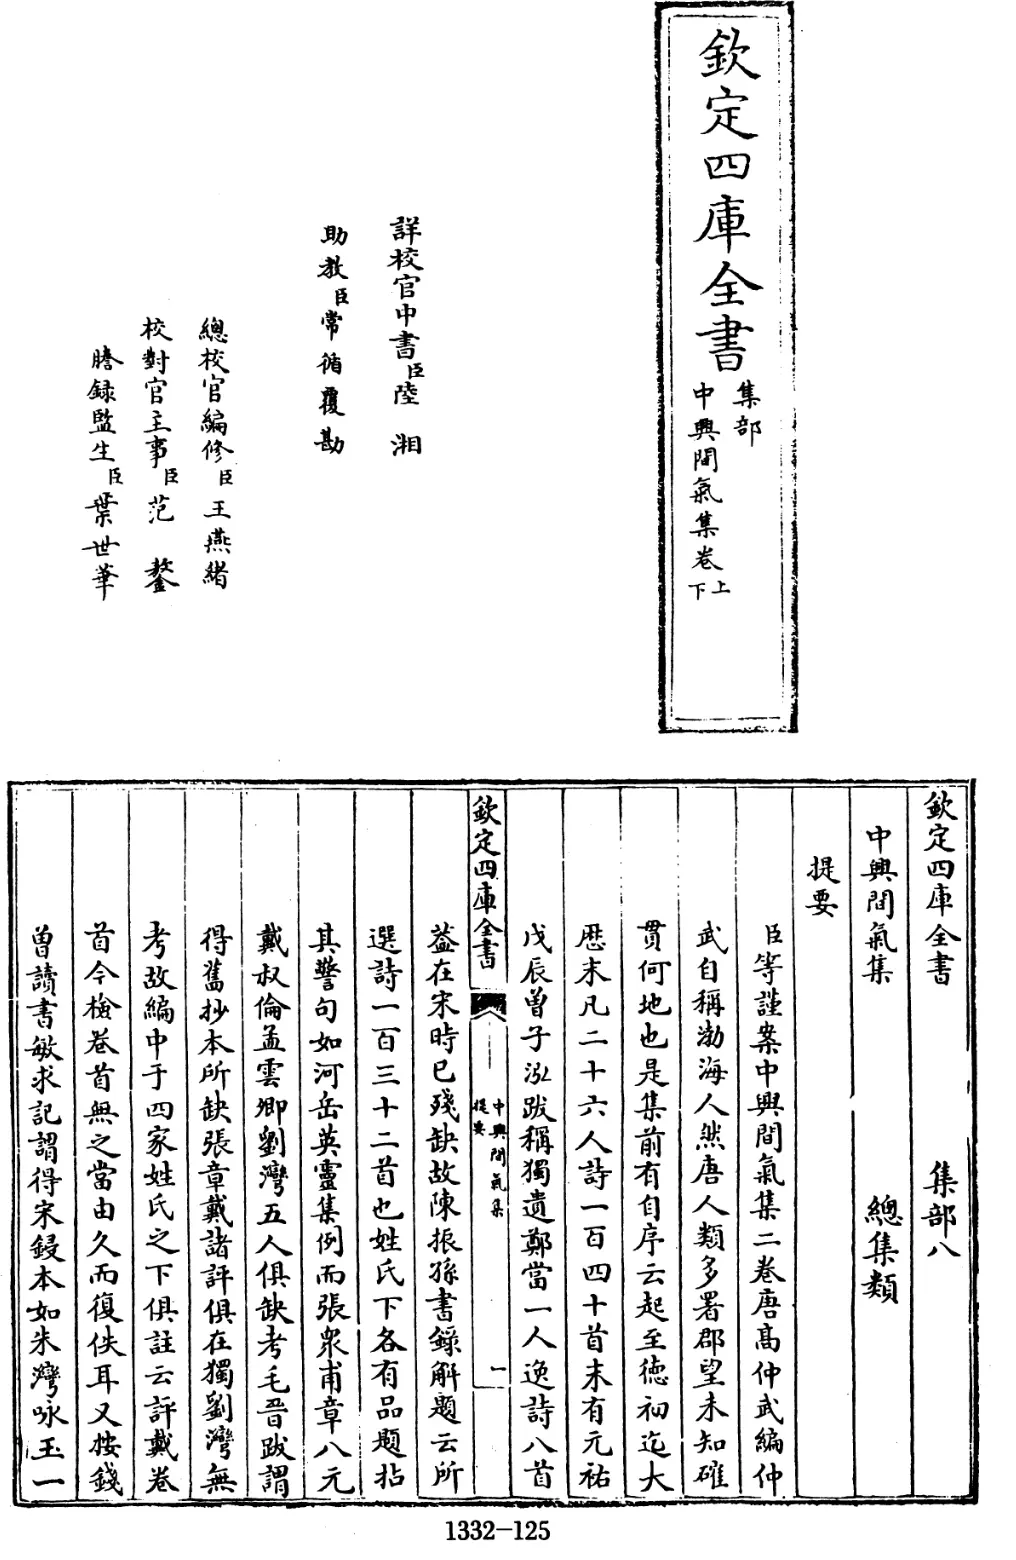 欽定四庫全書
集部
中興間氣集卷上下
詳校官中書臣陸湘
助教臣常循覆勘
總校官編修臣王燕緒
校對官主事臣范鏊
謄録監生臣葉世華
欽定四庫全書 集部八
中興間氣集 總集類
提要
臣等謹案中興間氣集二卷唐髙仲武編仲
武自稱渤海人然唐人類多署郡望未知確
貫何地也是集前有自序云起至徳初迄大
厯末凡二十六人詩一百四十首末有元祐
戊辰曾子泓跋稱獨遺鄭當一人逸詩八首
葢在宋時已殘缺故陳振孫書録解題云所
選詩一百三十二首也姓氏下各有品題拈
其警句如河岳英靈集例而張衆甫章八元
戴叔倫孟雲卿劉灣五人俱缺考毛晉跋謂
得舊抄本所缺張章戴諸評俱在獨劉灣無
考故編中于四家姓氏之下俱註云評戴卷
首今檢卷首無之當由久而復佚耳又按錢
曾讀書敏求記謂得宋鋟本如朱灣咏玉一
欽定四庫全書
中興間氣集
提要
一
1332-125